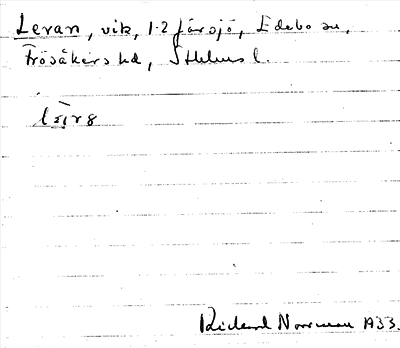 Levan, vik, 1-2 Färsjö, Edebo sn,
Frösåkers hd, Sthlms l.
Rickard Norrman 1933.